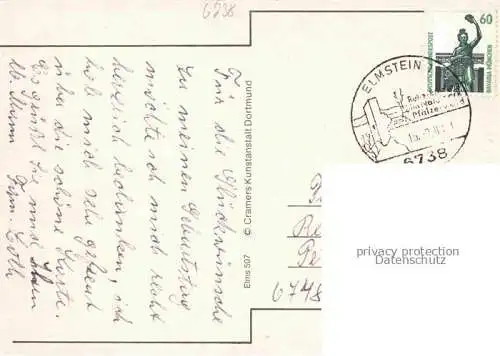 6738
Für die Glückwünsche
zu meinem Geburtstag
möchte ich mich recht
herzlich bedanken, ich
hab mich sehr gefreut
über die schöne Karte.
Es grüßt Sie und
Fam.
© Cramers Kunstanstalt Dortmund
Ebns 597
60
DEUTSCHE BUNDESPOST
BAVARIA MÜNCHEN
ELMSTEIN
Pfälzerwald
6738
6748
privacy protection
Datenschutz